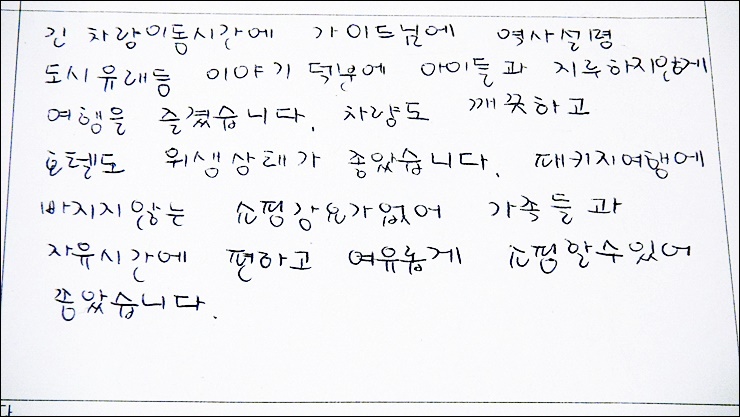 긴 차량이동시간에 가이드님에 역사설명
도시유래등 이야기 덕분에 아이들과 지루하지않게
여행을 즐겼습니다. 차량도 깨끗하고
호텔도 위생상태가 좋았습니다. 패키지여행에
빠지지않는 쇼핑강요가없어 가족들과
자유시간에 편하고 여유롭게 쇼핑할수있어
좋았습니다.